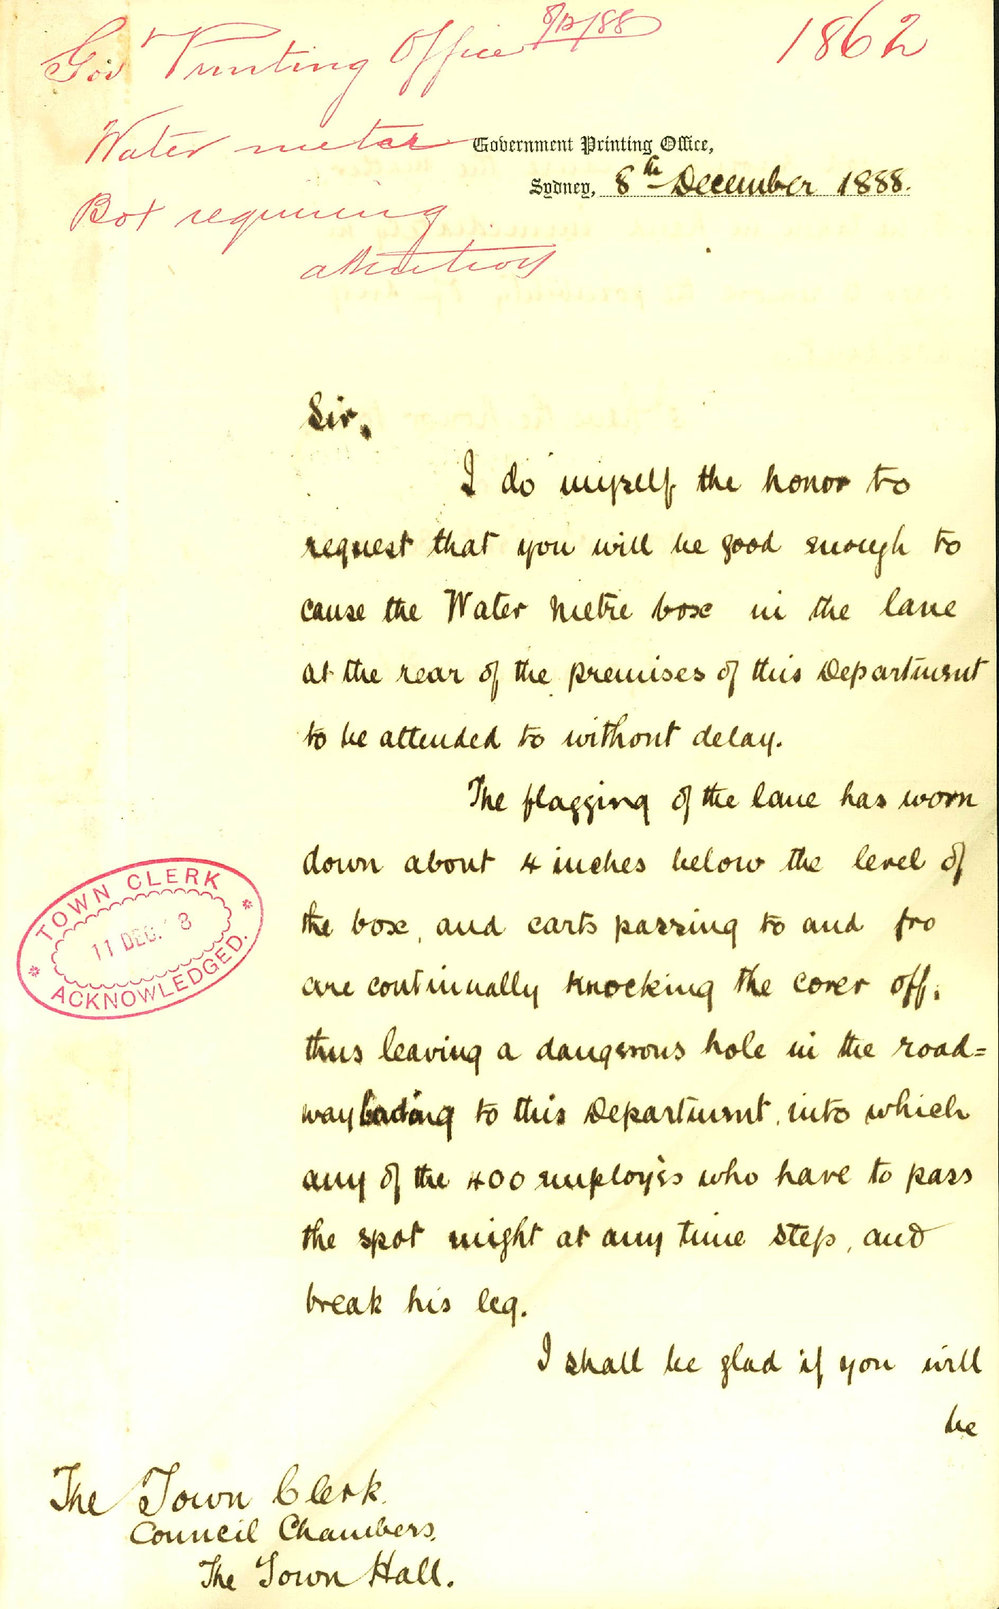 Gov't Printing Office 8/12/88
1862
Water meter
Box requiring
attention
Government Printing Office,
Sydney, 8th December 1888.
Sir,
I do myself the honor to
request that you will be good enough to
cause the Water Metre box in the lane
at the rear of the premises of this Department
to be attended to without delay.
The flagging of the lane has worn
down about 4 inches below the level of
the box, and carts passing to and fro
are continually knocking the cover off,
thus leaving a dangerous hole in the road=
way leading to this Department, into which
any of the 400 employés who have to pass
the spot might at any time step, and
break his leg.
I shall be glad if you will
be
TOWN CLERK
11 DEC. 8
ACKNOWLEDGED.
The Town Clerk.
Council Chambers,
The Town Hall.